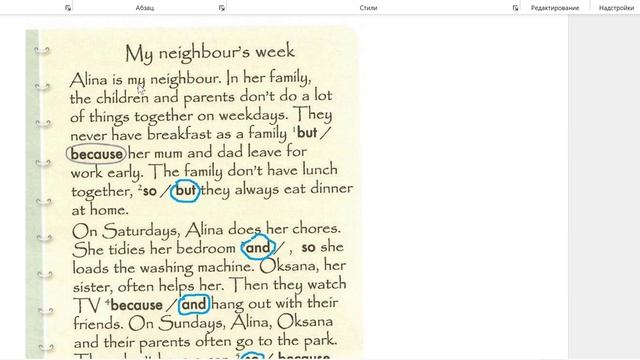 Абзац Стили Редактирование Надстройки
My neighbour's week
Alina is my neighbour. In her family,
the children and parents don't do a lot
of things together on weekdays. They
never have breakfast as a family ¹but /
because her mum and dad leave for
work early. The family don't have lunch
together, ²so / but they always eat dinner
at home.
On Saturdays, Alina does her chores.
She tidies her bedroom ³and / , so she
loads the washing machine. Oksana, her
sister, often helps her. Then they watch
TV ⁴because / and hang out with their
friends. On Sundays, Alina, Oksana
and their parents often go to the park.